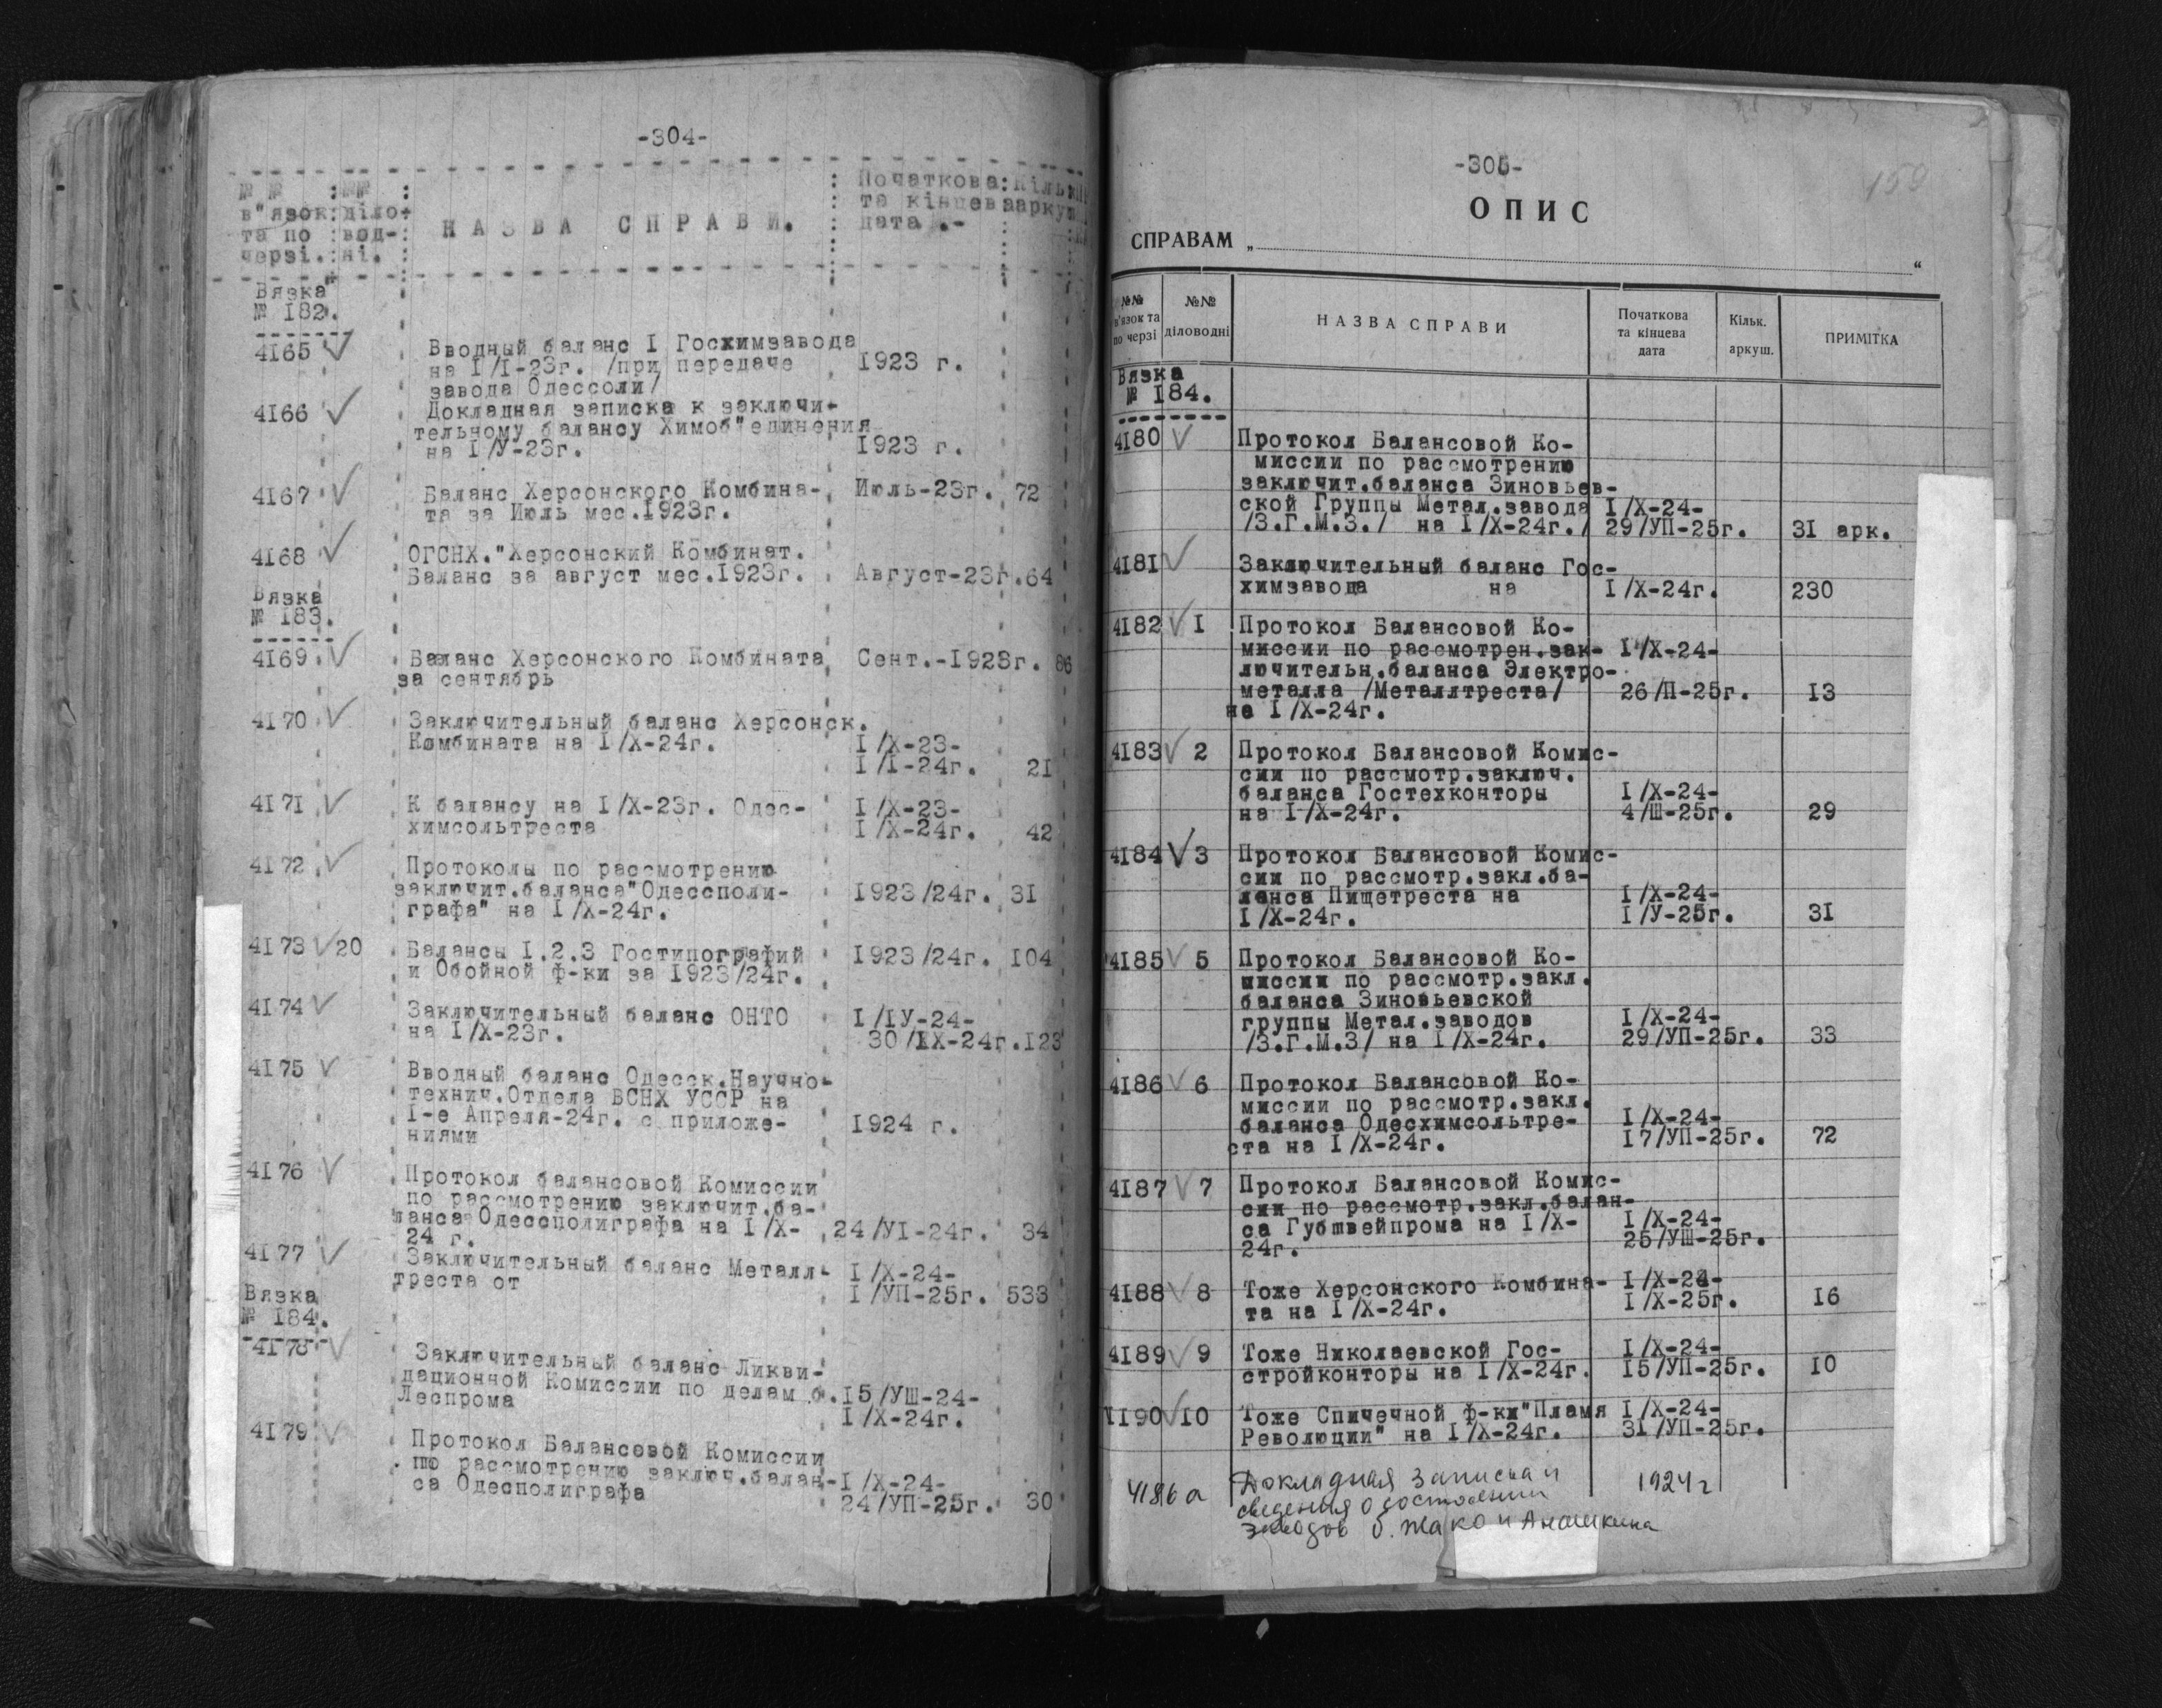 -304-
№ № :№№ :
в"язок:діло-
та по :вод-:
черзі.:ні. :
НАЗВА СПРАВИ.
Початкова:Кільк
та кінцева аркуш
дата .-
Вязка
№ 182.
4165 ✓ Вводный баланс I Госхимзавода
на I/I-23г. /при передаче 1923 г.
завода Одессоли/
4166 ✓ Докладная записка к заключи-
тельному балансу Химоб"единения
на I/У-23г. 1923 г.
4167 ✓ Баланс Херсонского Комбина- Июль-23г. 72
та за Июль мес.1923г.
4168 ✓ ОГСНХ."Херсонский Комбинат.
Баланс за август мес.1923г. Август-23г.64
Вязка
№ 183.
4169 ✓ Баланс Херсонского Комбината Сент.-1923г. 86
за сентябрь
4170 ✓ Заключительный баланс Херсонск.
Комбината на I/X-24г. I/X-23-
I/I-24г. 21
4171 ✓ К балансу на I/X-23г. Одес- I/X-23-
химсольтреста I/X-24г. 42
4172 ✓ Протоколы по рассмотрению
заключит.баланса"Одессполи- 1923/24г. 31
графа" на I/X-24г.
4173 ✓ 20 Балансы I.2.3 Гостипографий 1923/24г. 104
и Обойной ф-ки за 1923/24г.
4174 ✓ Заключительный баланс ОНТО I/IУ-24-
на I/X-23г. 30/IX-24г.123
4175 ✓ Вводный баланс Одесск.Научно-
технич.Отдела ВСНХ УССР на
I-е Апреля-24г. с приложе- 1924 г.
ниями
4176 ✓ Протокол балансовой Комиссии
по рассмотрению заключит.ба-
ланса Одессполиграфа на I/X- 24/УI-24г. 34
24 г.
4177 ✓ Заключительный баланс Металл- I/X-24-
треста от I/УП-25г. 533
Вязка
№ 184.
4178 ✓ Заключительный баланс Ликви-
дационной Комиссии по делам б. 15/УШ-24-
Леспрома I/X-24г.
4179 ✓ Протокол Балансовой Комиссии
по рассмотрению заключ.балан- I/X-24-
са Одесполиграфа 24/УП-25г. 30
-305-
159
ОПИС
СПРАВАМ „ “
№№ в'язок та по черзі
№№ діловодні
НАЗВА СПРАВИ
Початкова та кінцева дата
Кільк. аркуш.
ПРИМІТКА
Вязка
№ 184.
4180 ✓ Протокол Балансовой Ко-
миссии по рассмотрению
заключит.баланса Зиновьев-
ской Группы Метал.завода I/X-24-
/З.Г.М.З./ на I/X-24г./ 29/УП-25г. 31 арк.
4181 ✓ Заключительный баланс Гос-
химзавода на I/X-24г. 230
4182 ✓ 1 Протокол Балансовой Ко-
миссии по рассмотрен.зак- I/X-24-
лючительн.баланса Электро-
металла /Металлтреста/ 26/П-25г. 13
на I/X-24г.
4183 ✓ 2 Протокол Балансовой Комис-
сии по рассмотр.заключ.
баланса Гостехконторы I/X-24-
на I/X-24г. 4/Ш-25г. 29
4184 ✓ 3 Протокол Балансовой Комис-
сии по рассмотр.закл.ба-
ланса Пищетреста на I/X-24-
I/X-24г. I/У-25г. 31
4185 ✓ 5 Протокол Балансовой Ко-
миссии по рассмотр.закл.
баланса Зиновьевской
группы Метал.заводов I/X-24-
/З.Г.М.З/ на I/X-24г. 29/УП-25г. 33
4186 ✓ 6 Протокол Балансовой Ко-
миссии по рассмотр.закл.
баланса Одесхимсольтре- I/X-24-
ста на I/X-24г. 17/УП-25г. 72
4187 ✓ 7 Протокол Балансовой Комис-
сии по рассмотр.закл.балан-
са Губшвейпрома на I/X- I/X-24-
24г. 25/УШ-25г.
4188 ✓ 8 Тоже Херсонского Комбина- I/X-24-
та на I/X-24г. I/X-25г. 16
4189 ✓ 9 Тоже Николаевской Гос- I/X-24-
стройконторы на I/X-24г. 15/УП-25г. 10
4190 ✓ 10 Тоже Спичечной ф-ки"Пламя I/X-24-
Революции" на I/X-24г. 31/УП-25г.
4186 а Докладная записка и 1924 г
сведения о состоянии
заводов б. Жако и Анашкина